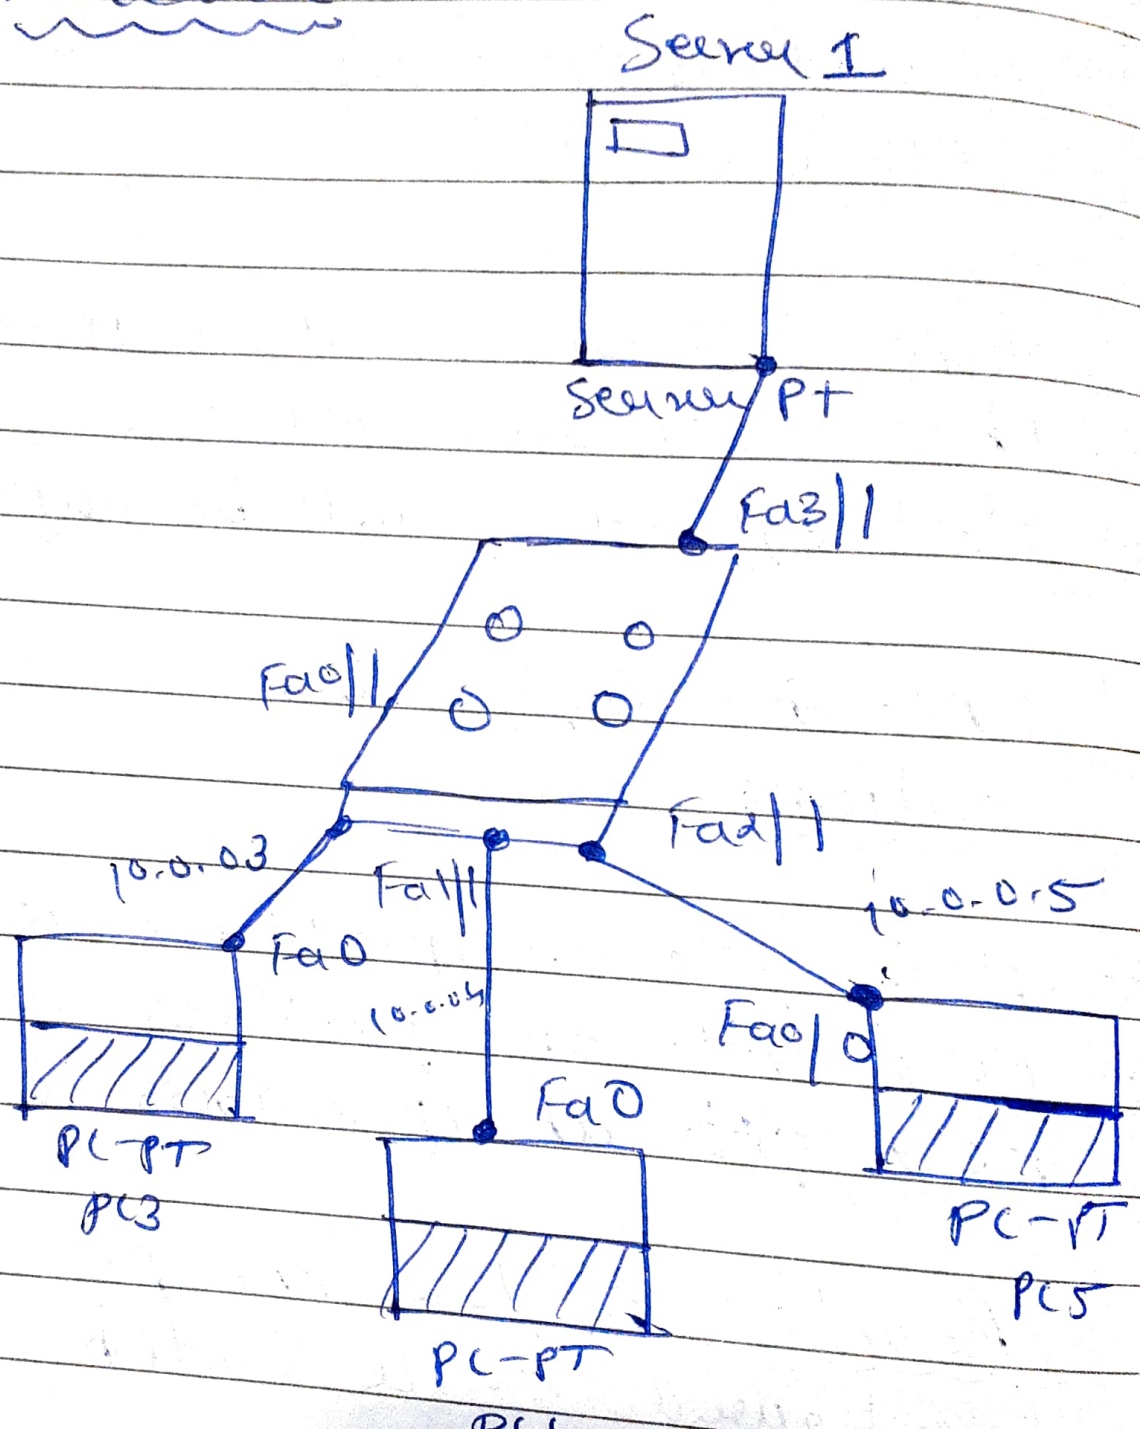 Server 1
Server Pt
Fa3/1
Fa0/1
Fa2/1
10.0.03
Fa1/1
10.0.0.5
Fa0
10.0.04
Fa0/0
Fa0
PC-PT
PC3
PC-PT
PC5
PC-PT